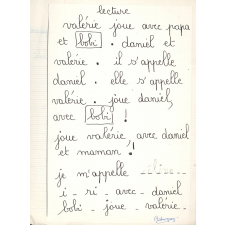 lecture
valérie joue avec papa
et bobi . daniel et
valérie . il s'appelle
daniel . elle s'appelle
valérie . joue daniel,
avec bobi !
joue valérie, avec daniel
et maman !
je m'appelle
i - ri - avec - daniel
bobi - joue - valérie -